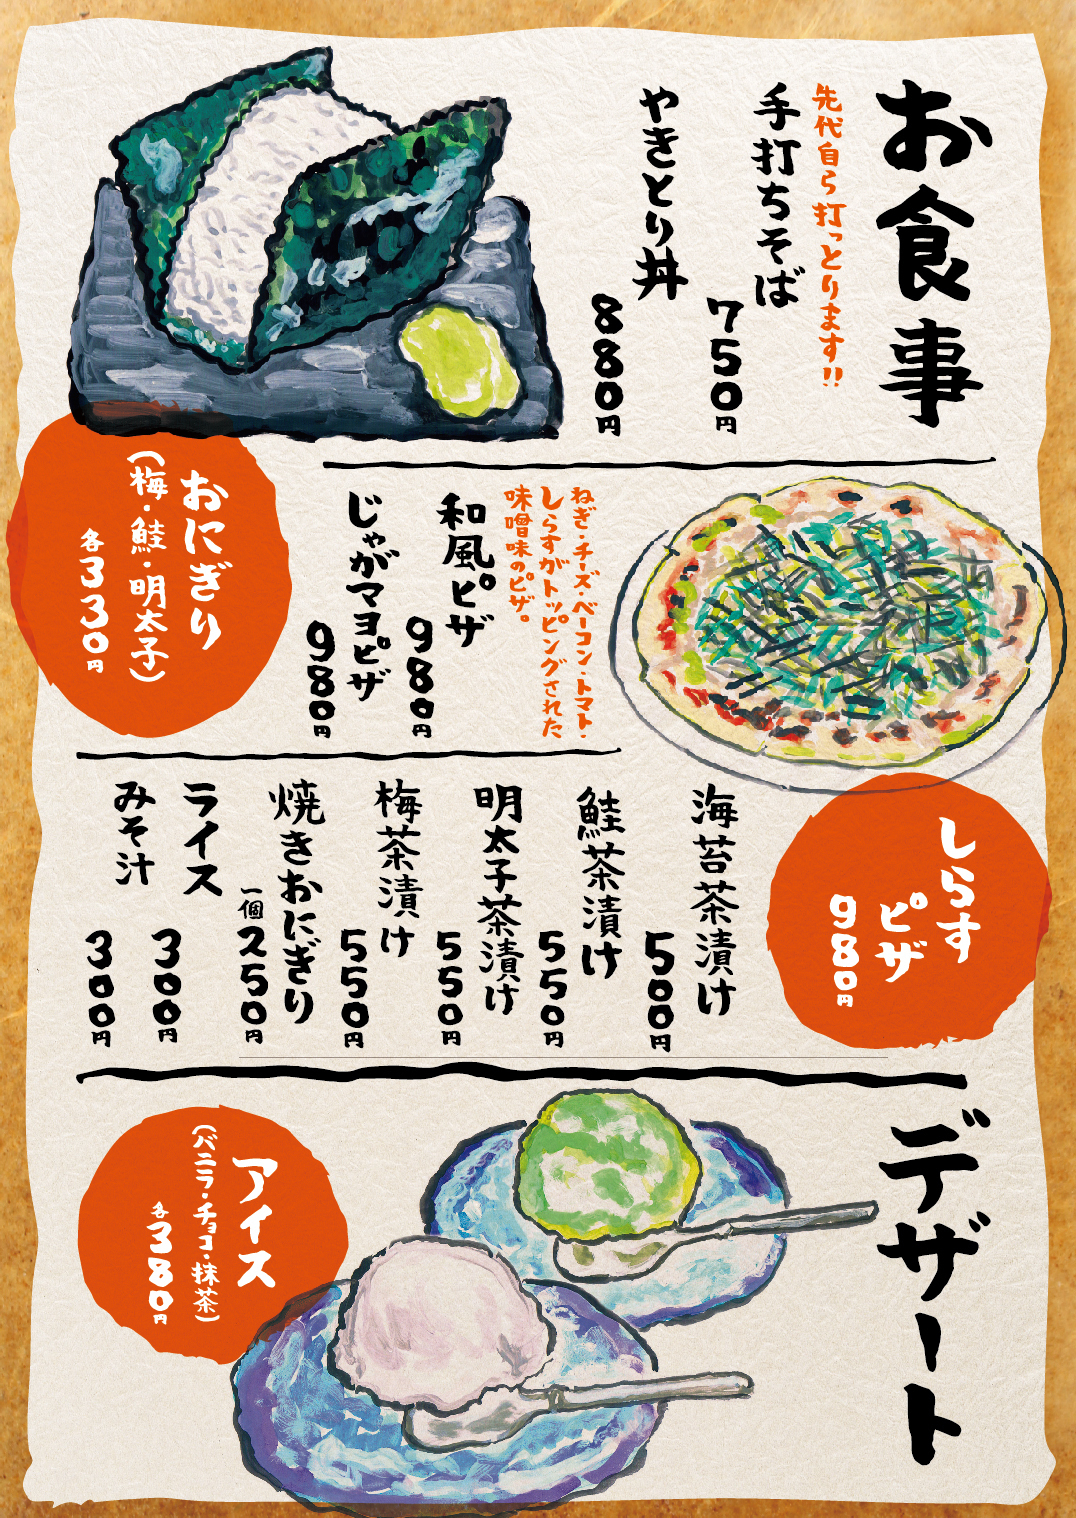 お食事
先代自ら打っとります!!
手打ちそば
750円
やきとり丼
880円
ねぎ・チーズ・ベーコン・トマト・
しらすがトッピングされた
味噌味のピザ。
和風ピザ
980円
じゃがマヨピザ
980円
おにぎり
(梅・鮭・明太子)
各330円
しらす
ピザ
980円
海苔茶漬け
500円
鮭茶漬け
550円
明太子茶漬け
550円
梅茶漬け
550円
焼きおにぎり
一個250円
ライス
300円
みそ汁
300円
デザート
アイス
(バニラ・チョコ・抹茶)
各380円